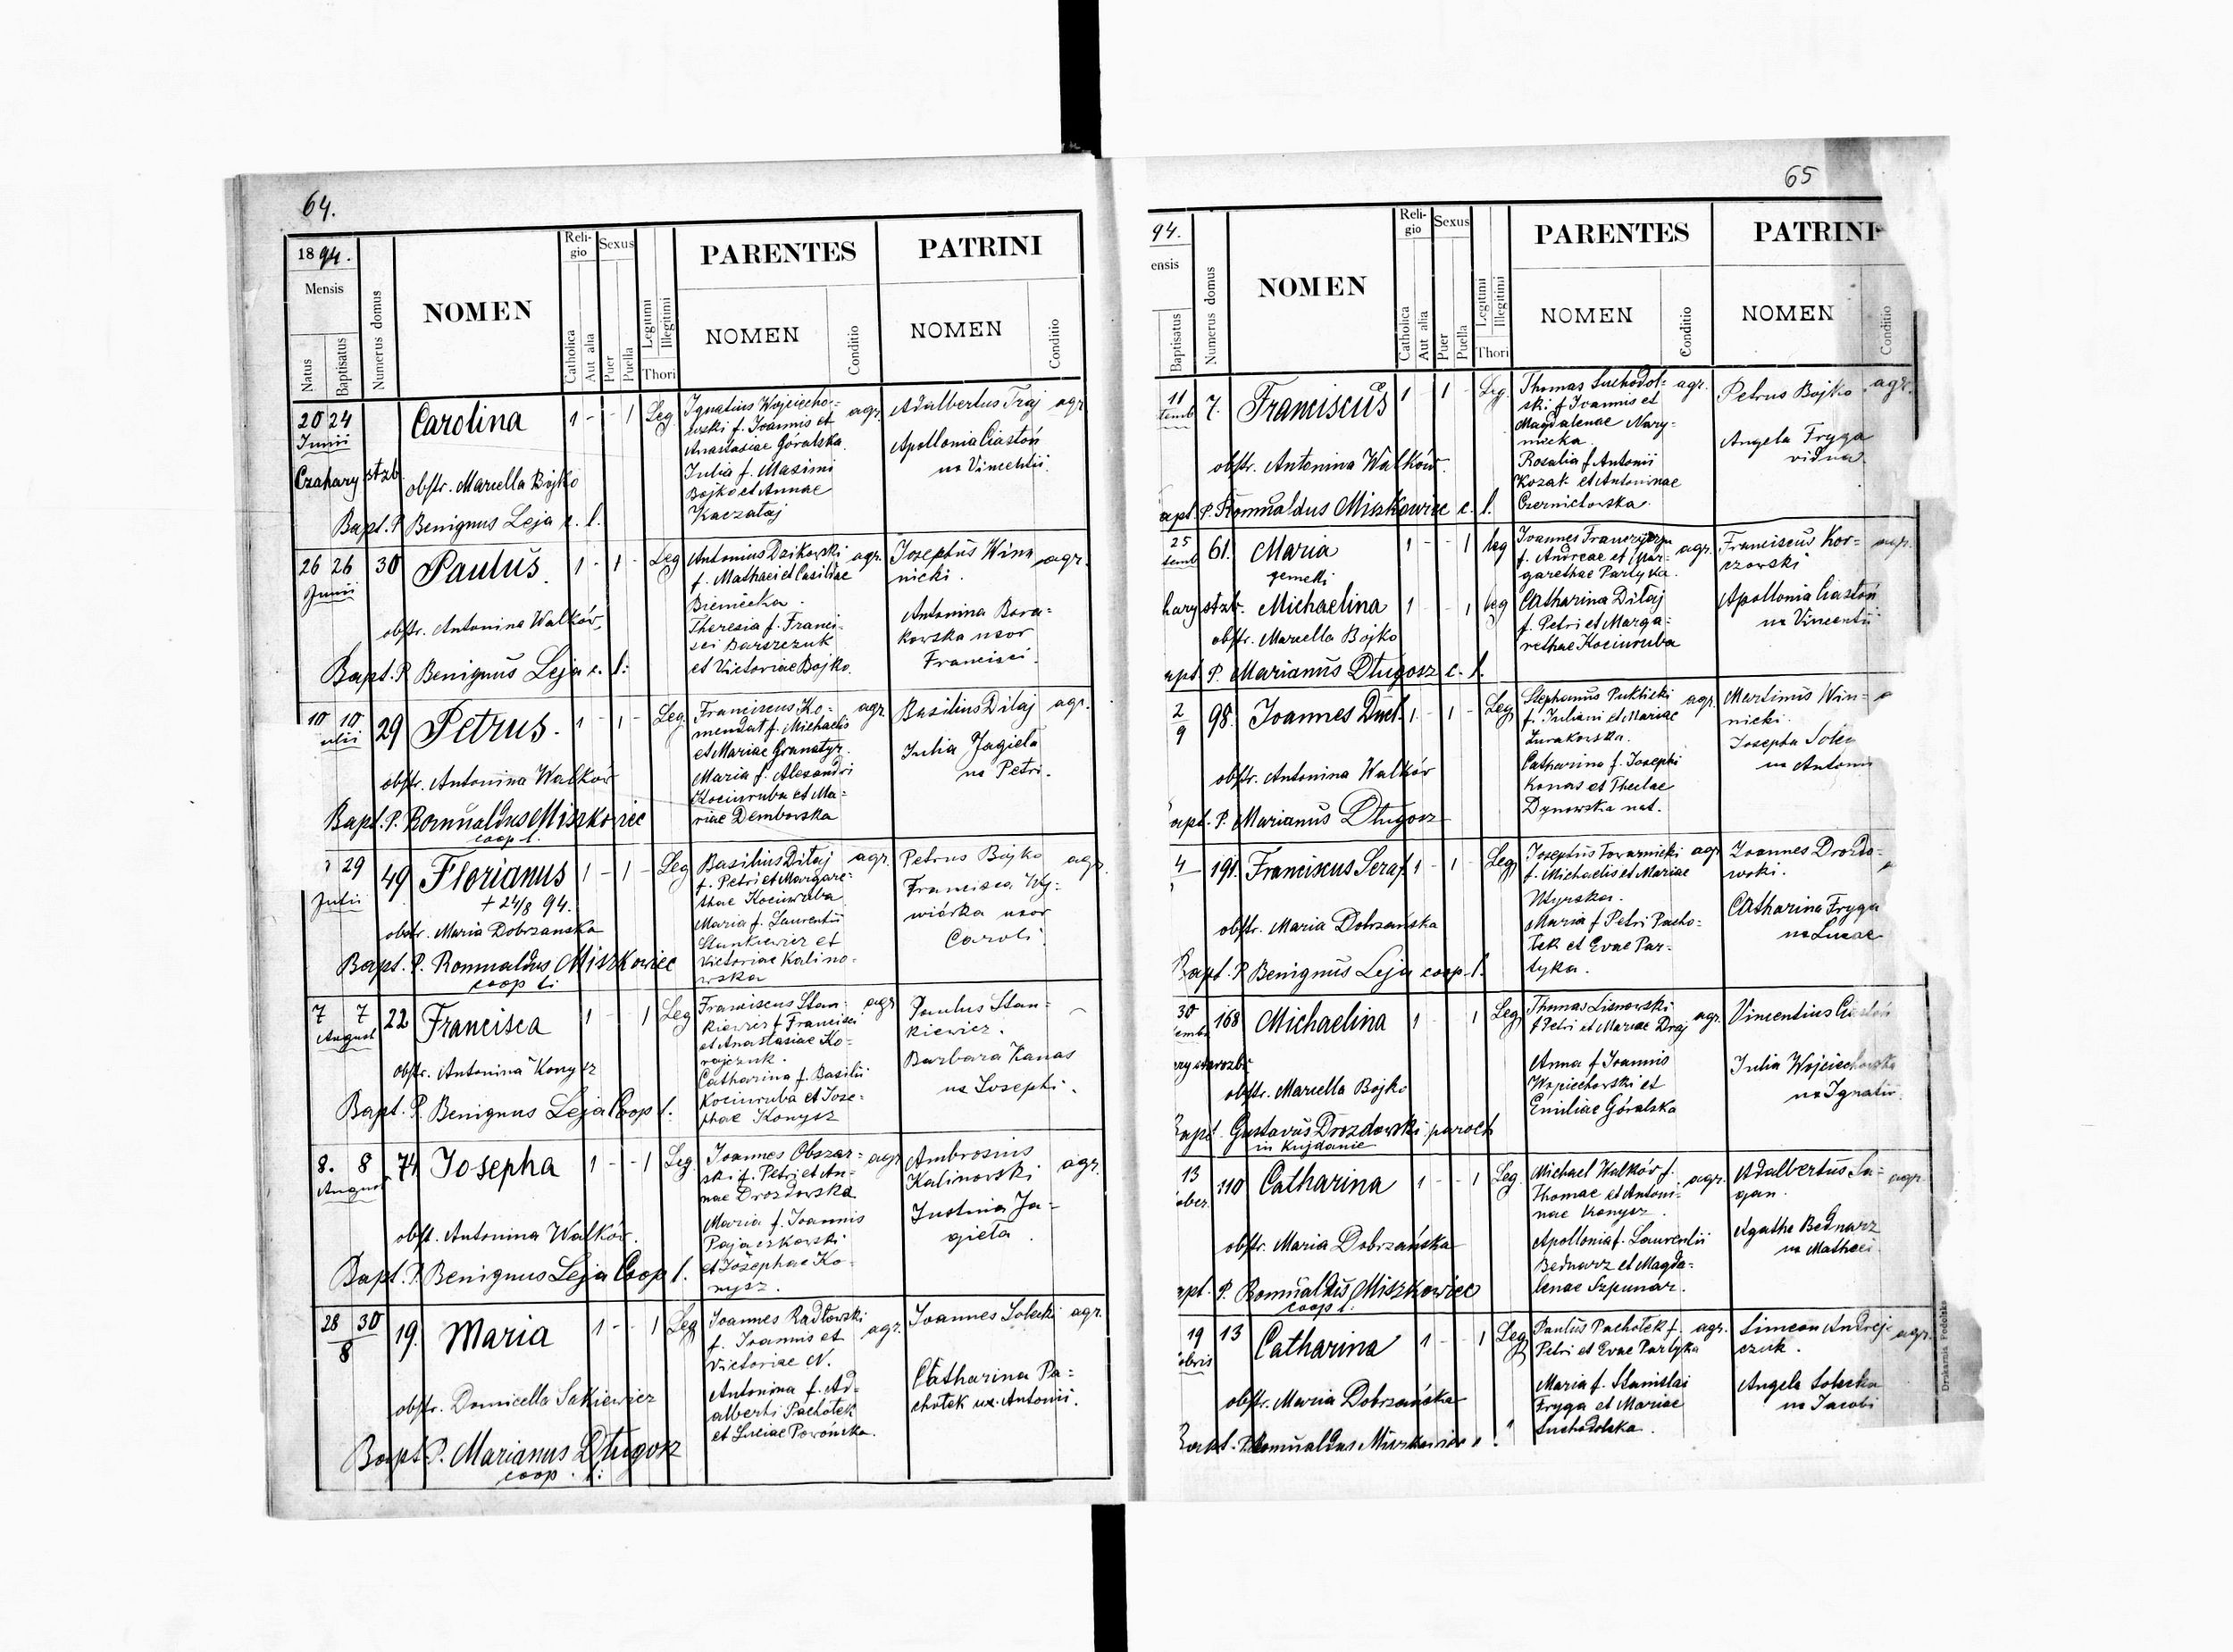 64.
1894.
Mensis
Natus
Baptisatus
Numerus domus
NOMEN
Religio
Catholica
Aut alia
Sexus
Puer
Puella
Legitimi
Illegitimi
Thori
PARENTES
NOMEN
Conditio
PATRINI
NOMEN
Conditio
20 24
Junii
Czahary st zb.
Carolina
1 - - 1 Leg
obstr. Marcella Bojko
Bapt. P. Benignus Leja c. l.
Ignatius Wojciecho-
wski f. Joannis et
Anastasiae Góralska.
Julia f. Maximi
Bojko et Annae
Kaczałaj
agr.
Adalbertus Draj agr
Apollonia Ciastoń
ux Vincentii.
26 26
Junii
30
Paulus.
1 - 1 - Leg
obstr. Antonina Walków,
Bapt. P. Benignus Leja c. l.
Antonius Dzikowski
f. Mathaei et Casiliae
Bieniecka.
Theresia f. Franci-
sci Barszczuk
et Victoriae Bojko.
agr.
Josephus Winn
nicki. agr.
Antonina Bora-
kowska uxor
Francisci.
10 10
ulii
29
Petrus.
1 - 1 - Leg
obstr. Antonina Walków
Bapt. P. Romualdus Miszkowiec
coop. l.
Franciscus Ko-
mendat f. Michaelis
et Mariae Granatyr.
Maria f. Alexandri
Kociuruba et Ma-
riae Dembowska
agr.
Basilius Diłaj agr.
Julia Jagieła
ux Petri.
29
Julii
49
Florianus
+ 24/8 94.
1 - 1 - Leg
obstr. Maria Dobrzańska
Bapt. P. Romualdus Miszkowiec
coop l.
Basilius Diłaj
f. Petri et Margare-
thae Kociuruba
Maria f. Laurentii
Stankiewicz et
Victoriae Kalino-
wska
agr.
Petrus Bojko agr.
Francisca Wy-
wiórka uxor
Caroli.
7 7
August
22
Francisca
1 - - 1 Leg
obstr. Antonina Konysz
Bapt. P. Benignus Leja Coop l.
Franciscus Stan-
kiewicz f. Francisci
et Anastasiae Ko-
rajczuk.
Catharina f. Basilii
Kociuruba et Jose-
phae Konysz
agr
Paulus Stan-
kiewicz.
Barbara Kanas
ux Josephi.
8. 8
August
74
Josepha
1 - - 1 Leg.
obst. Antonina Walków.
Bapt. P. Benignus Leja Coop l.
Joannes Obszar-
ski f. Petri et An-
nae Drozdowska
Maria f. Joannis
Pajaczkowski
et Josephae Ko-
nysz.
agr
Ambrosius
Kalinowski agr.
Justina Ja-
gieła.
28 30
8
19.
Maria
1 - - 1 Leg
obstr. Domicella Sakiewicz
Bapt. P. Marianus Długosz
coop. l:
Joannes Radłowski
f. Joannis et
Victoriae N.
Antonina f. Ad-
alberti Pachołek
et Luciae Porońska.
agr.
Joannes Solecki agr.
Catharina Pa-
chołek ux. Antonii.
65
94.
ensis
Baptisatus
Numerus domus
NOMEN
Religio
Catholica
Aut alia
Sexus
Puer
Puella
Legitimi
Illegitimi
Thori
PARENTES
NOMEN
Conditio
PATRINI
NOMEN
Conditio
11
temb
7.
Franciscus
1 - 1 - Leg.
obstr. Antonina Walków.
apt. P. Romualdus Miszkowiec c. l.
Thomas Suchodol-
ski f. Joannis et
Magdalenae Nary-
nicka.
Rosalia f. Antonii
Kozak et Antoninae
Czernichowska.
agr.
Petrus Bojko agr.
Angela Fryga
vidua.
25
temb
61.
Maria
gemelli
1 - - 1 leg
hary st zb. Michaelina 1 - - 1 leg
obstr. Marcella Bojko
apt. P. Marianus Długosz c. l.
Joannes
f. Andreae et Mar-
garethae Partyka.
Catharina Diłaj
f. Petri et Marga-
rethae Kociuruba
agr.
Franciscus Kor-
czowski agr.
Apollonia Ciastoń
ux Vincentii
2
9
98.
Joannes Ducl.
1 - 1 - Leg
obstr. Antonina Walków
apt. P. Marianus Długosz
Stephanus Puklicki
f. Juliani et Mariae
Żurakowska.
Catharina f. Josephi
Konas et Theclae
Dynowska nat.
agr.
Martinus Win-
nicki.
Josepha Sole
ux Antoni
4
191.
Franciscus Seraf.
1 - 1 - Leg
obstr. Maria Dobrzańska
Bapt. P. Benignus Leja coop. l.
Josephus Towarnicki
f. Michaelis et Mariae
Maria f. Petri Pacho-
łek et Evae Par-
tyka.
agr
Joannes Drozdo-
wski.
Catharina Fryga
ux Lucae
30
temb
168
Michaelina
1 - - 1 Leg
obstr. Marcella Bojko
Bapt. Gustavus Drozdowski paroch
in Kujdanie
Thomas Lisnowski
f. Petri et Mariae Draj
Anna f. Joannis
Wojciechowski et
Emiliae Góralska
agr.
Vincentius Ciastoń
Julia Wojciechowska
ux Ignatii.
13
ober
110
Catharina
1 - - 1 Leg.
obstr. Maria Dobrzańska
apt. P. Romualdus Miszkowiec
coop l.
Michael Walków f.
Thomae et Antoni-
nae Konysz.
Apollonia f. Laurentii
Bednarz et Magda-
lenae Szpunar.
agr.
Adalbertus Ła-
gan. agr.
Agatha Bednarz
ux Mathaei
19
obris
13
Catharina
1 - - 1 Leg
obstr. Maria Dobrzańska
Bapt. P. Romualdus Miszkowiec
Paulus Pachołek f.
Petri et Evae Partyka
Maria f. Stanislai
Fryga et Mariae
Suchodolska.
agr.
Simeon Andrej-
czuk. agr.
Angela Solecka
ux Jacobi
Drukarnia Podolska